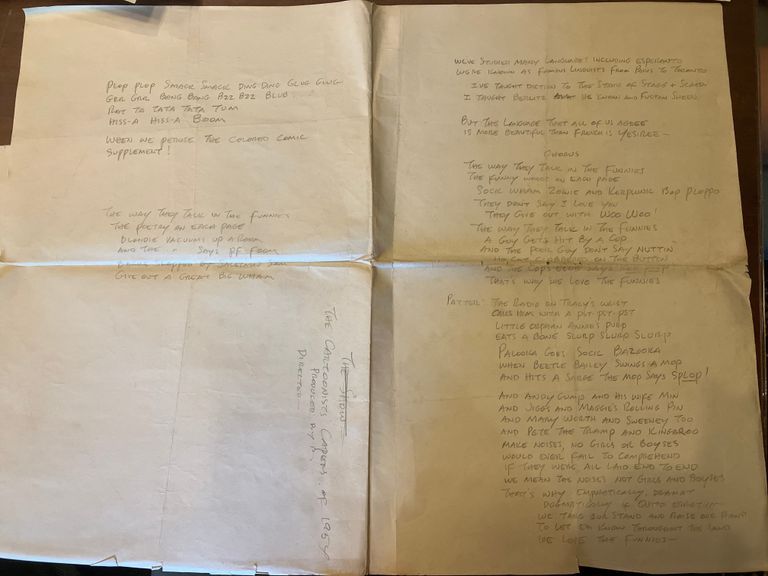 PLOP PLOP SMACK SMACK DING DING GLUG GLUG
GRR GRR BANG BANG BZZ BZZ BLUB
RAT TA TATA TATA TUM
HISS-A HISS-A BOOM
WHEN WE PERUSE THE COLORED COMIC
SUPPLEMENT!
THE WAY THEY TALK IN THE FUNNIES
THE POETRY ON EACH PAGE
BLONDIE VACUUMS UP A ROOM
AND THE " SAYS PF FOOM
BY
GIVE OUT A GREAT BIG WHAM
THE SHOW
THE CARTOONISTS CAPERS OF 195
PRODUCED BY
DIRECTED
WE'VE STUDIED MANY LANGUAGES INCLUDING ESPERANTO
WE'RE KNOWN AS FAMOUS LINGUISTS FROM PARIS TO TORONTO
I'VE TAUGHT DICTION TO THE STARS OF STAGE + SCREEN
I TAUGHT BERLITZ HE KNOWS AND FULTON SHEEN
BUT THE LANGUAGE THAT ALL OF US AGREE
IS MORE BEAUTIFUL THAN FRENCH IS YESIREE-
CHORUS
THE WAY THEY TALK IN THE FUNNIES
THE FUNNY WORDS ON EACH PAGE
SOCK WHAM ZOWIE AND KERPLUNK BOP PLOPPO
THEY DON'T SAY I LOVE YOU
THEY GIVE OUT WITH WOO WOO!
THE WAY THEY TALK IN THE FUNNIES
A GUY GETS HIT BY A COP
AND THE POOR GUY DON'T SAY NUTTIN
ON THE BUTTON
AND THE COPS CLUB SAYS
THAT'S WHY WE LOVE THE FUNNIES
PATTER: THE RADIO ON TRACY'S WRIST
CALLS HIM WITH A PST-PST-PST
LITTLE ORPHAN ANNIE'S PURP
EATS A BONE SLURP SLURP SLURP
PALOOKA GOES SOCK BAZOOKA
WHEN BEETLE BAILEY SWINGS A MOP
AND HITS A SARGE THE MOP SAYS SPLOP!
AND ANDY GUMP AND HIS WIFE MIN
AND JIGGS AND MAGGIE'S ROLLING PIN
AND MARY WORTH AND SWEENEY TOO
AND PETE THE TRAMP AND KINGAROO
MAKE NOISES, NO GIRLS OR BOYSES
WOULD EVER FAIL TO COMPREHEND
IF THEY WERE ALL LAID END TO END
WE MEAN THE NOISES NOT GIRLS AND BOYSES
THAT'S WHY EMPHATICALLY, DRAMAT
DOGMATICALLY & QUITE
WE TAKE OUR STAND AND RAISE OUR HAND
TO LET EM KNOW THROUGHOUT THE LAND
WE LOVE THE FUNNIES-